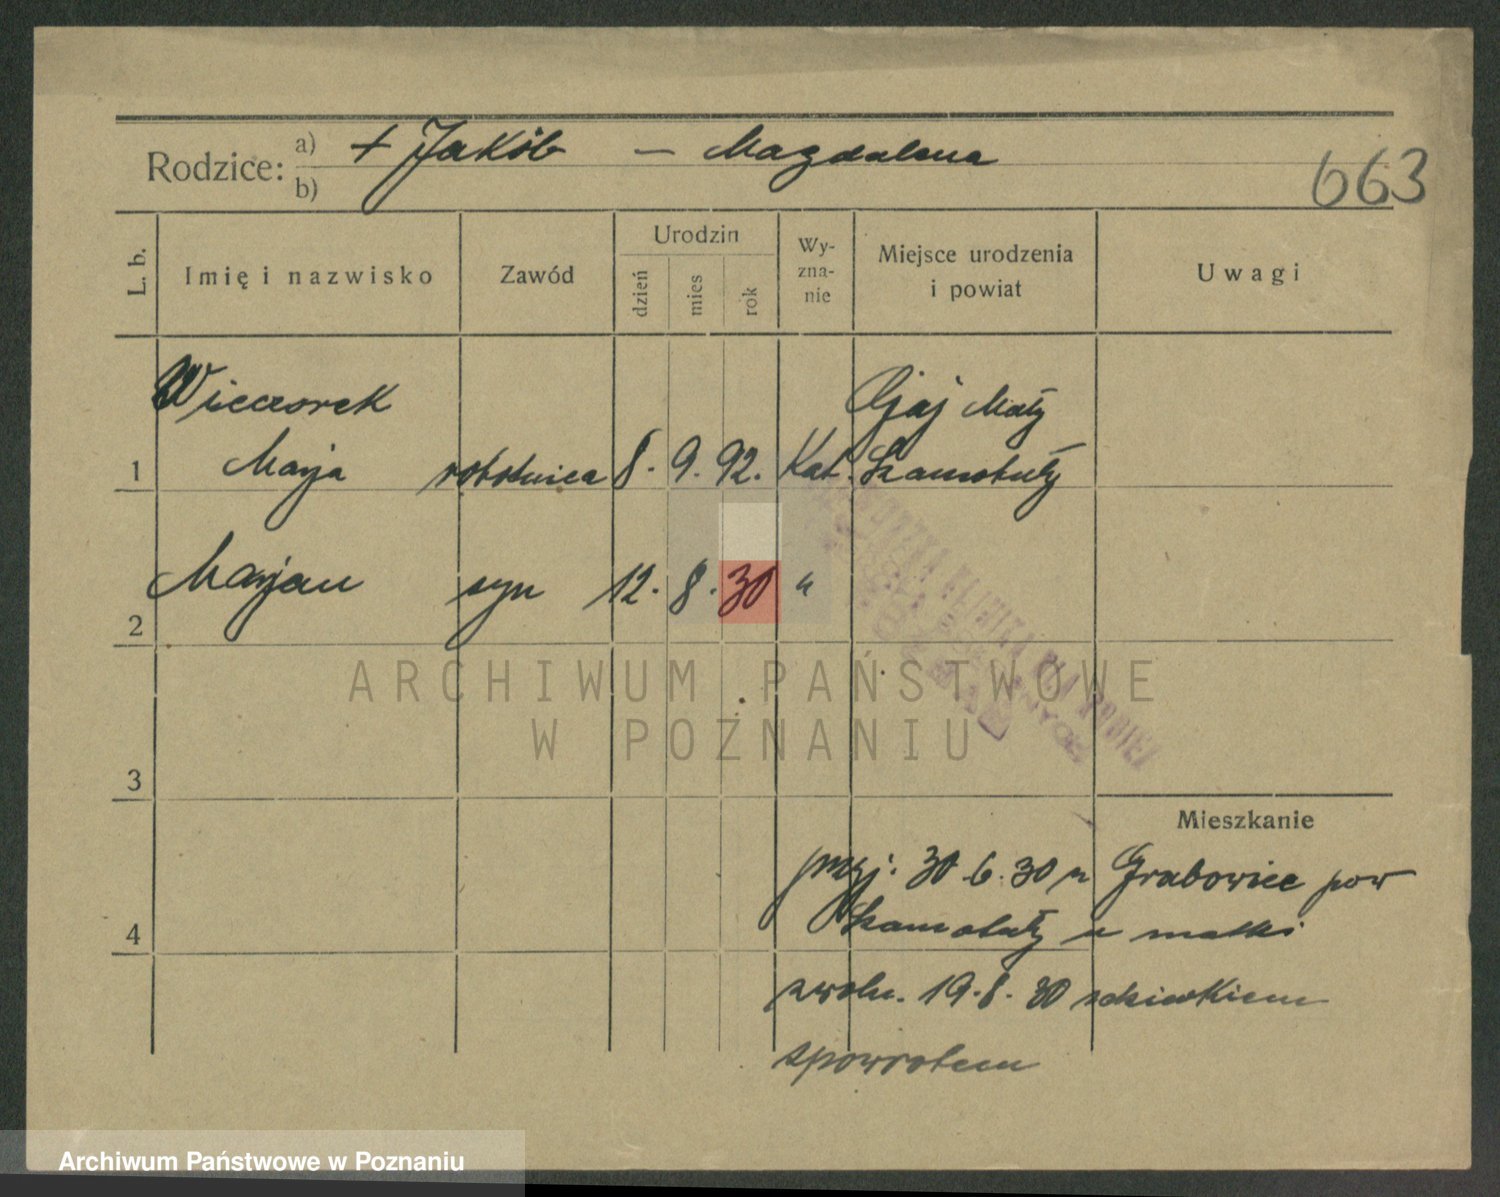 Rodzice: a) + Jakób — Magdalena
b)
663
L. b. Imię i nazwisko Zawód Urodzin dzień mies rok Wy-zna-nie Miejsce urodzenia i powiat Uwagi
Wieczorek Mały
1 Marja robotnica 8. 9. 92. Kat. Szamotuły
2 Marjan syn 12. 8. 30 "
ARCHIWUM PAŃSTWOWE
W POZNANIU
3
Mieszkanie
przyj. 30.6.30 z Grabowiec pow
4 Szamotuły u matki
zwoln. 19.8.30 z dzieckiem
spowrotem
Archiwum Państwowe w Poznaniu